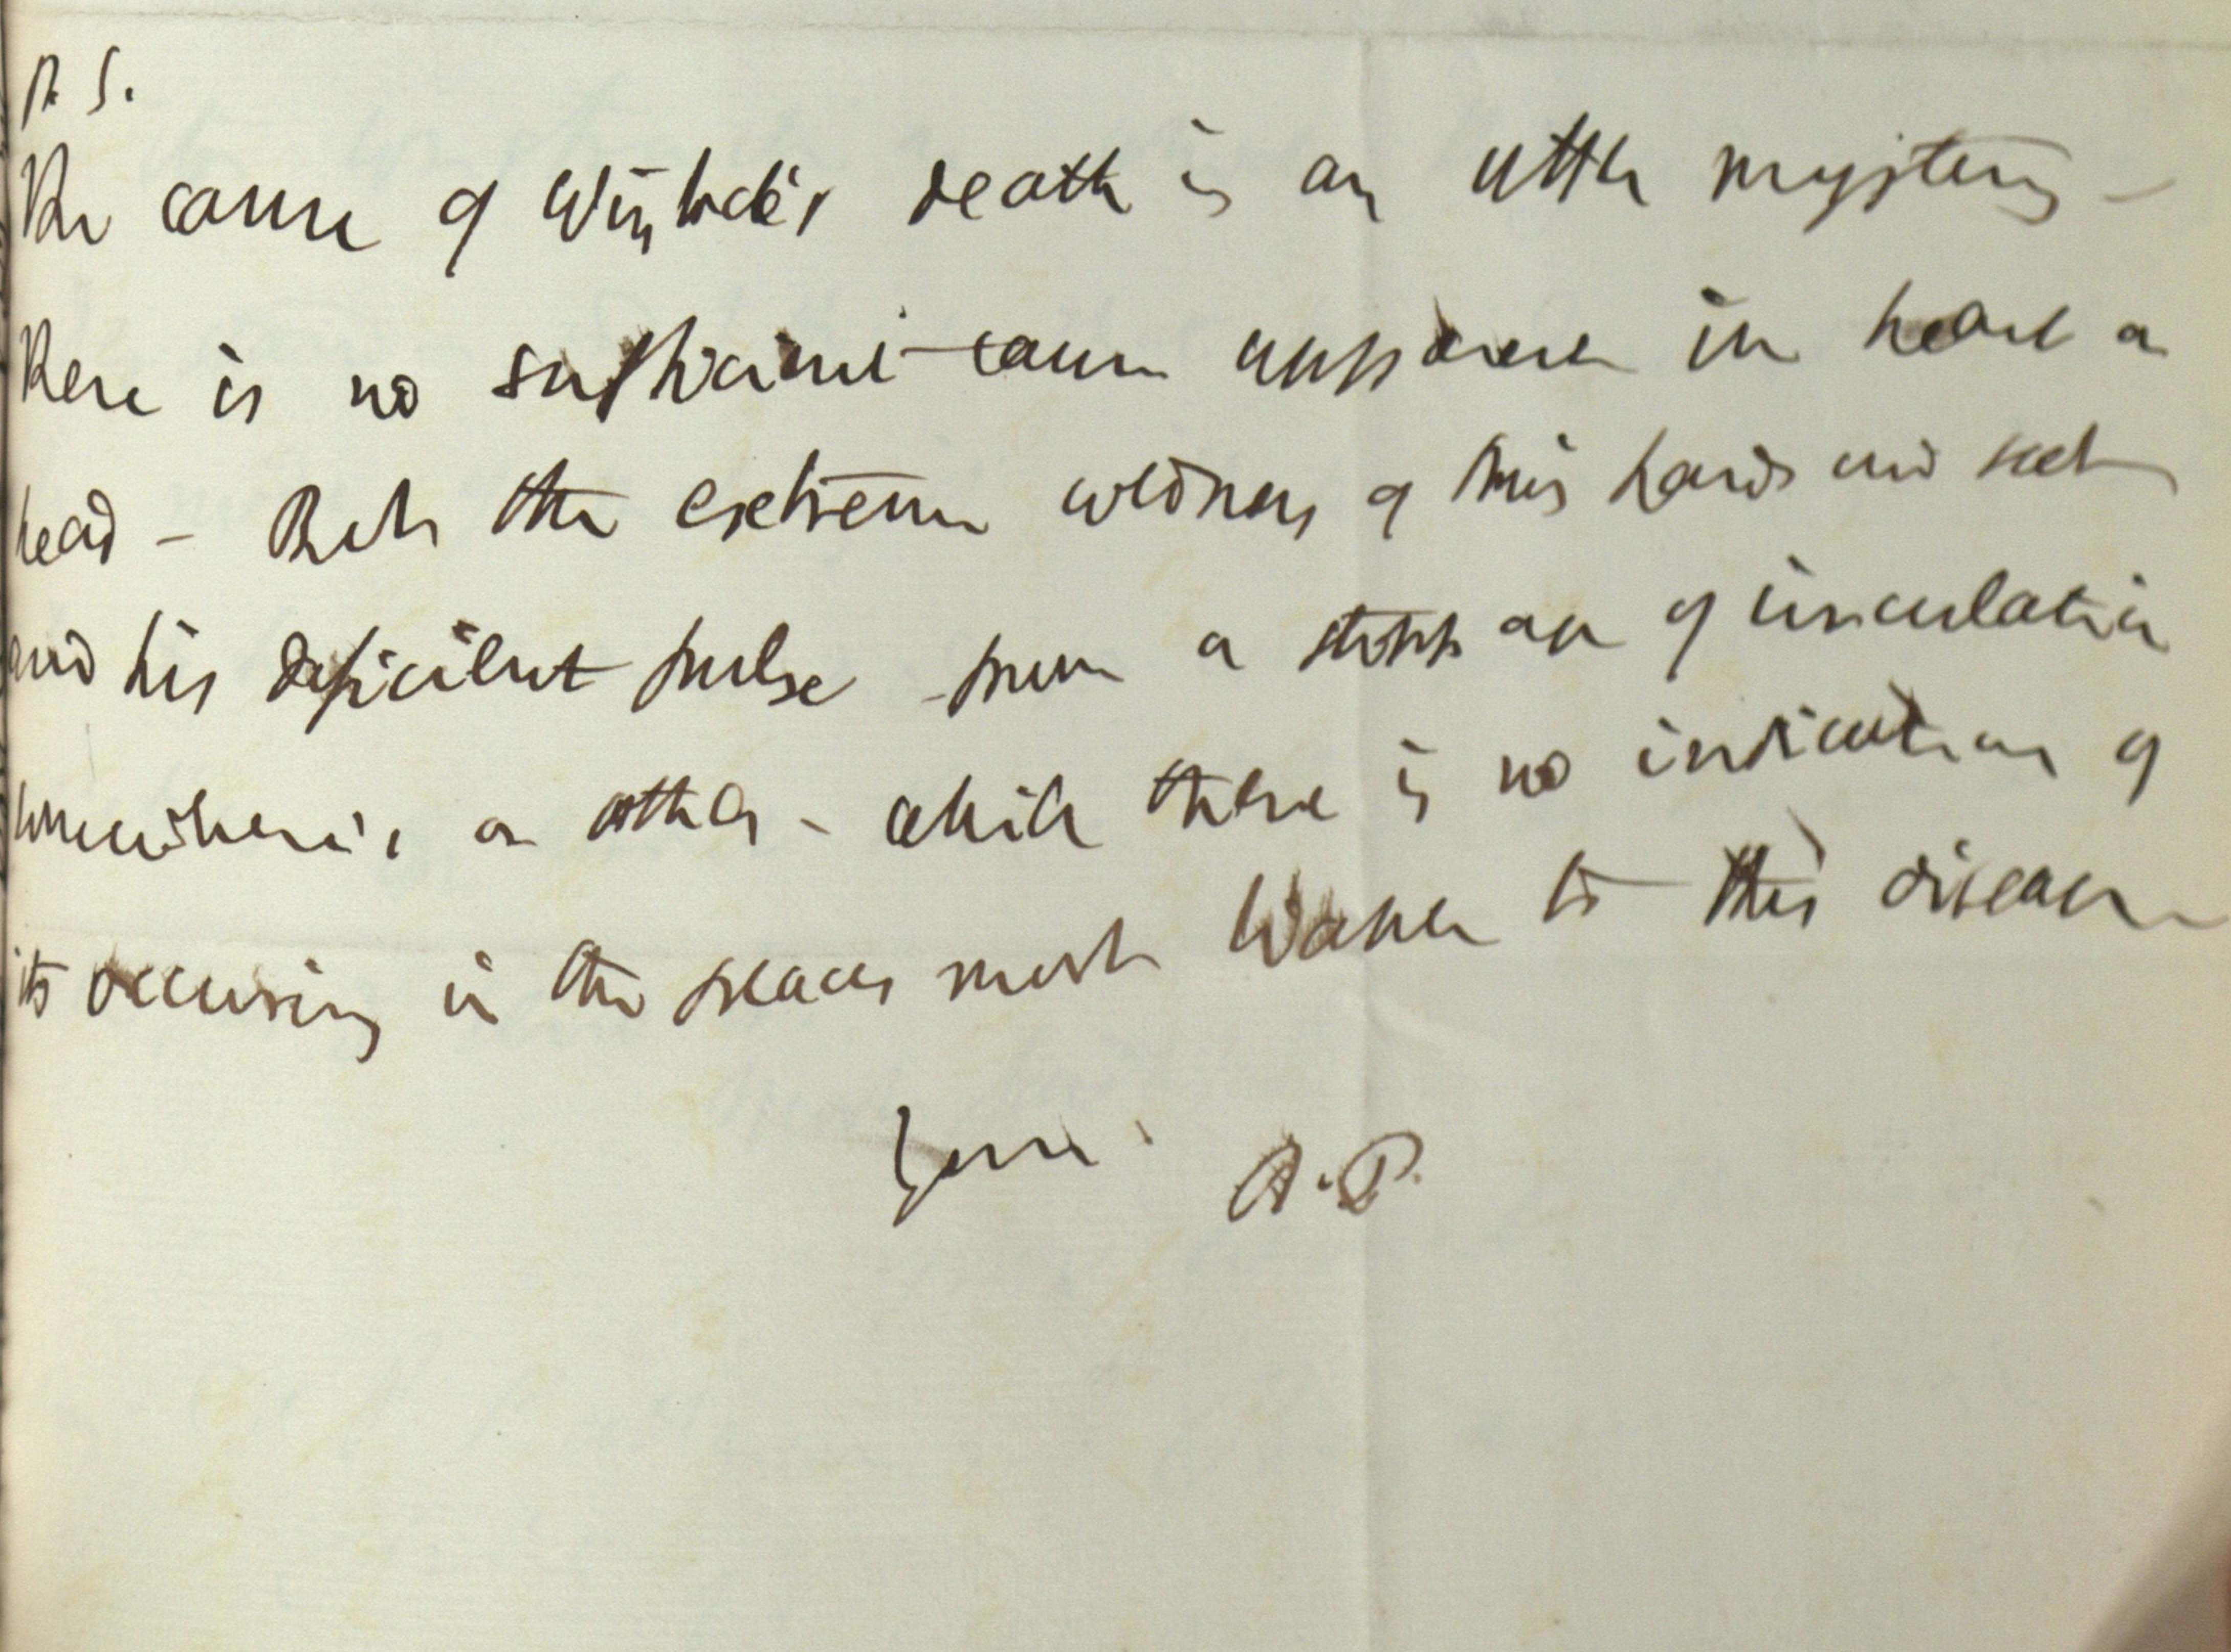 P. S.
The cause of death is an utter mystery –
There is no sufficient cause apparent in heart or
head – But the extreme coldness of his hands and feet
and his deficient pulse prove a stoppage of circulation
somewhere or other – while there is no indication of
its occurring in the places most to this disease
Yours A.P.